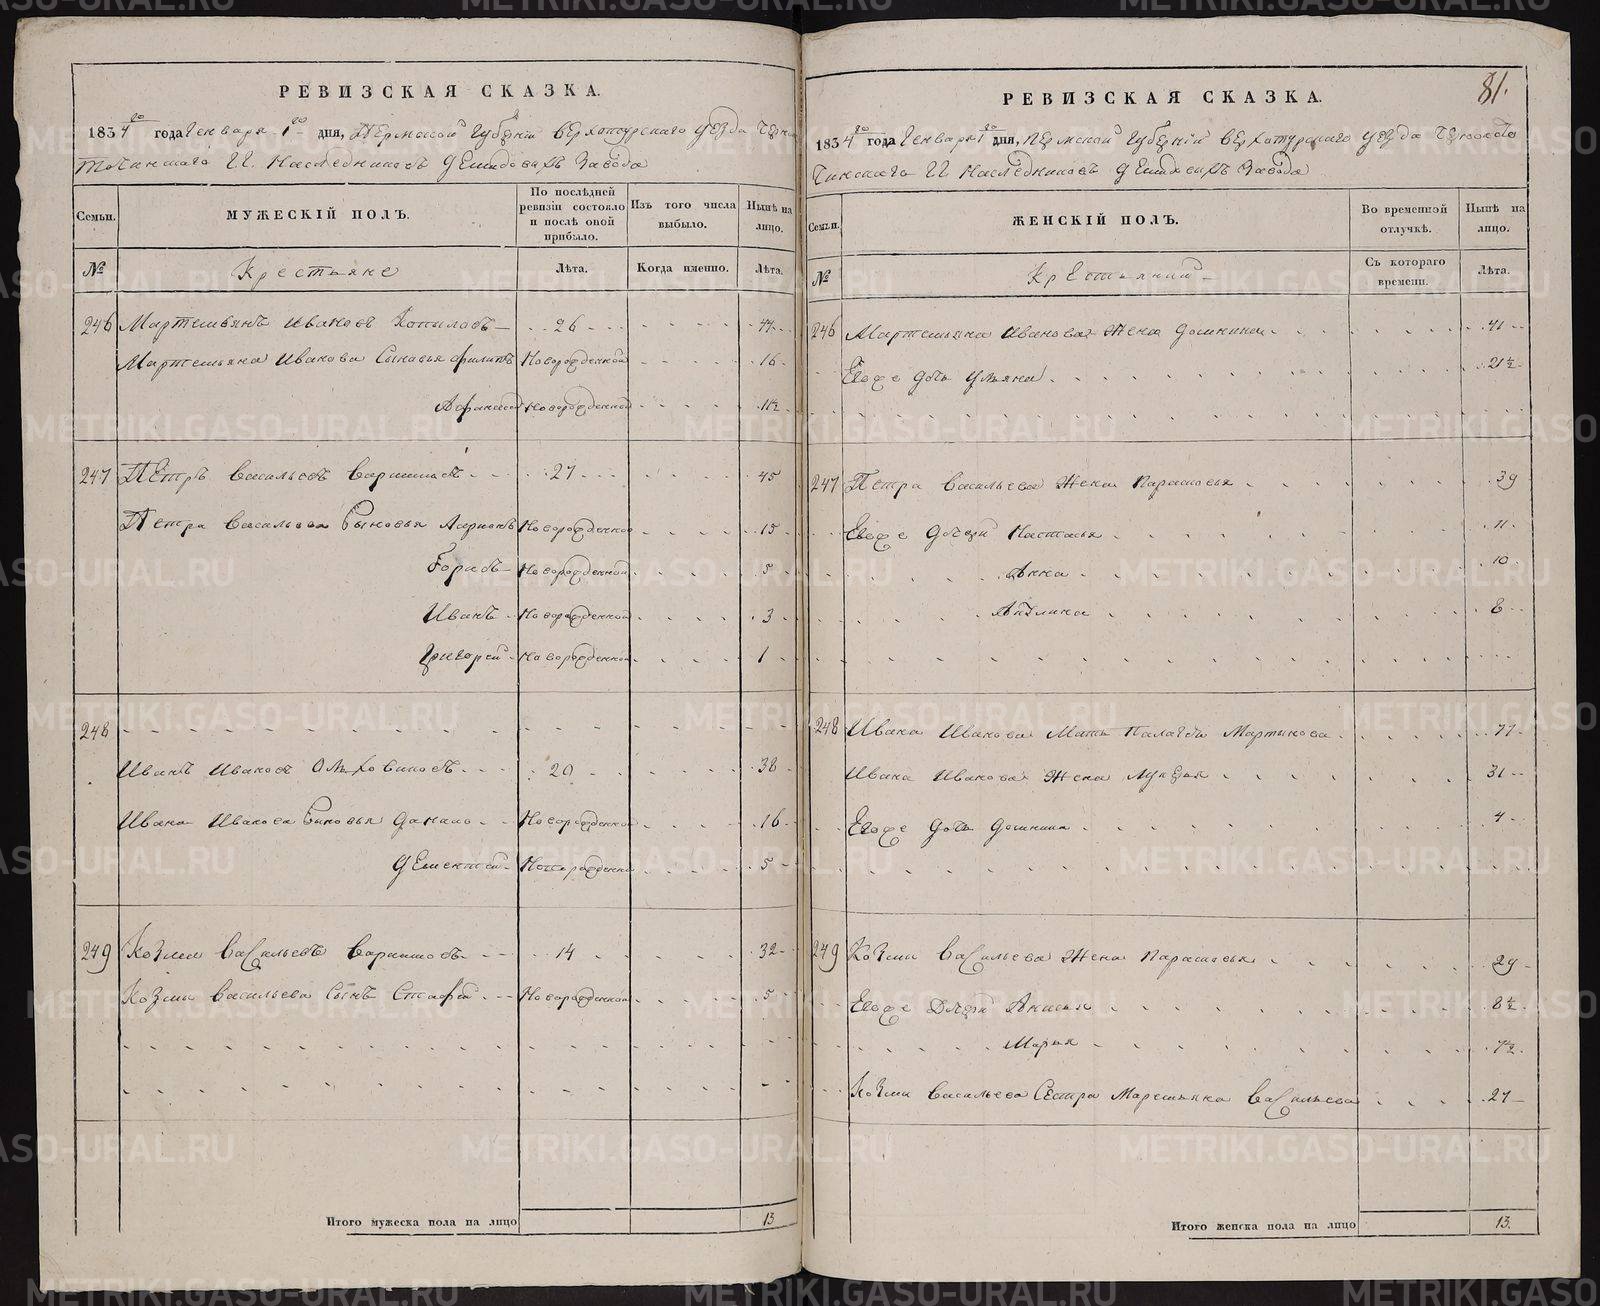 РЕВИЗСКАЯ СКАЗКА.
1834го года Генваря 1го дня, Пермской Губернии Верхотурскаго уезда Черно
Источинскаго ГГ. Наследниковъ Демидовыхъ Завода
Семьи.
МУЖЕСКІЙ ПОЛЪ.
По послѣдней ревизіи состояло и послѣ оной прибыло.
Изъ того числа выбыло.
Нынѣ на лицо.
№
Крестьяне
Лѣта.
Когда именно.
Лѣта.
246 Мартемьянъ Ивановъ Копыловъ 26 44
Мартемьяна Иванова Сыновья Филипъ Новорожденной 16
Афанасей Новорожденной 11½
247 Петръ Васильевъ 27 45
Петра Васильева Сыновья Ларионъ Новорожденной 15
Новорожденной 5
Иванъ Новорожденной 3
Григорей Новорожденной 1
248
Иванъ Ивановъ Ольховиковъ 20 38
Ивана Иванова Сыновья Данило Новорожденной 16
Дементей Новорожденной 5
249 Козма Васильевъ 14 32
Козмы Васильева Сынъ Новорожденной 5
Итого мужеска пола на лицо 13
81.
РЕВИЗСКАЯ СКАЗКА.
1834го года Генваря 1го дня, Пермской Губернии Верхотурскаго уезда Черноисто
Чинскаго ГГ Наследниковъ Демидовыхъ Завода
Семьи.
ЖЕНСКІЙ ПОЛЪ.
Во временной отлучкѣ.
Нынѣ на лицо.
№
Крестьяния
Съ котораго времени.
Лѣта.
246 Мартемьяна Иванова Жена Домнина 41
Евоже дочь Ульяна 21½
247 Петра Васильева Жена Парасковья 39
Евоже дочери Настасья 11
Анна 10
8
248 Ивана Иванова Мать Палагея Мартынова 77
Ивана Иванова Жена Лукерья 31
Евоже дочь Домнина 4
249 Козмы Васильева Жена Парасковья 29
Евоже Дочери Анисья 8½
Марья
Козмы Васильева Сестра Маремьяна Васильева 27
Итого женска пола на лицо 13.
METRIKI.GASO-URAL.RU